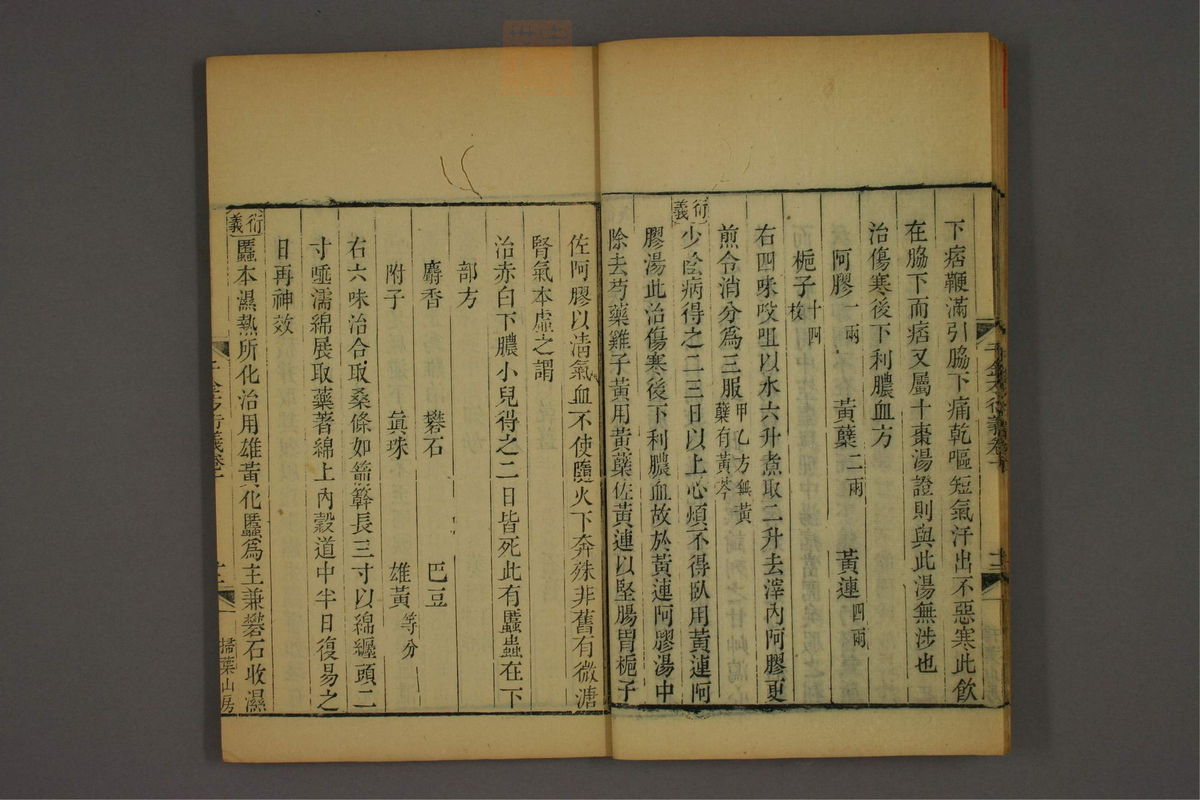 下痞鞕滿引脇下痛乾嘔短氣汗出不惡寒此飲
在脇下而痞又屬十棗湯證則與此湯無涉也
治傷寒後下利膿血方
阿膠一兩 黃蘗二兩 黃連四兩
梔子十四枚
右四味㕮咀以水六升煮取二升去滓內阿膠更
煎令消分爲三服甲乙方無黃蘗有黃芩
衍義
少陰病得之二三日以上心煩不得臥用黃連阿
膠湯此治傷寒後下利膿血故於黃連阿膠湯中
除去芍藥雞子黃用黃蘗佐黃連以堅腸胃梔子
佐阿膠以清氣血不使隨火下奔殊非舊有微溏
腎氣本虛之謂
治赤白下膿小兒得之二日皆死此有䘌蟲在下
部方
麝香 礬石 巴豆
附子 眞珠 雄黃等分
右六味治合取桑條如箭簳長三寸以綿纏頭二
寸唾濡綿展取藥著綿上內穀道中半日復易之
日再神效
衍義
䘌本濕熱所化治用雄黃化䘌爲主兼礬石收濕
掃葉山房